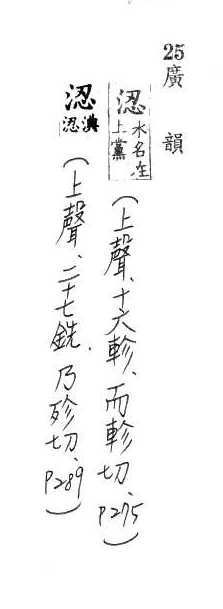 25廣韻
涊水名在上黨(上聲、十六軫、而軫切、P275)
涊淟涊(上聲、二十七銑、乃殄切、P289)